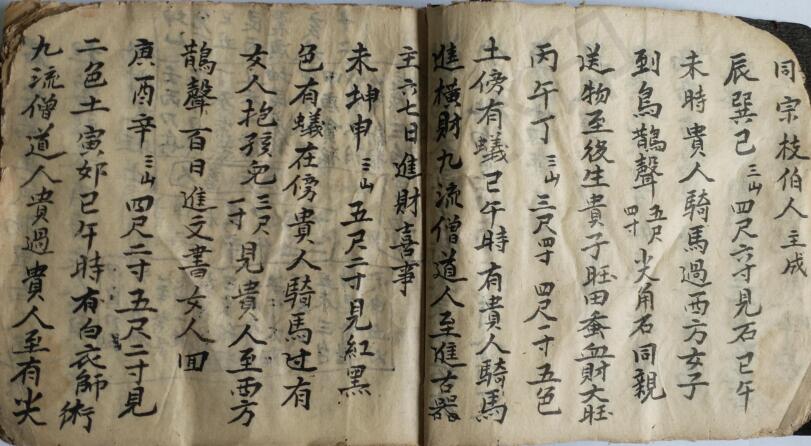 同宗枝伯人主成
辰巽巳三山四尺六寸見石巳午
未時貴人騎馬過西方女子
到烏鵲聲五尺四寸尖角石同親
送物至後生貴子旺田蚕血財大旺
丙午丁三山三尺四寸四尺一寸五色
土傍有蟻巳午時有貴人騎馬
進橫財九流僧道人至進古器
主六七日進財喜事
未坤申三山五尺二寸見紅黑
色有蟻在傍貴人騎馬过有
女人抱孩兒三尺一寸見貴人至西方
鵲聲百日進文書女人回
庚酉辛三山四尺二寸五尺二寸見
二色土寅卯巳午時有白衣師術
九流僧道人貴過貴人至有尖